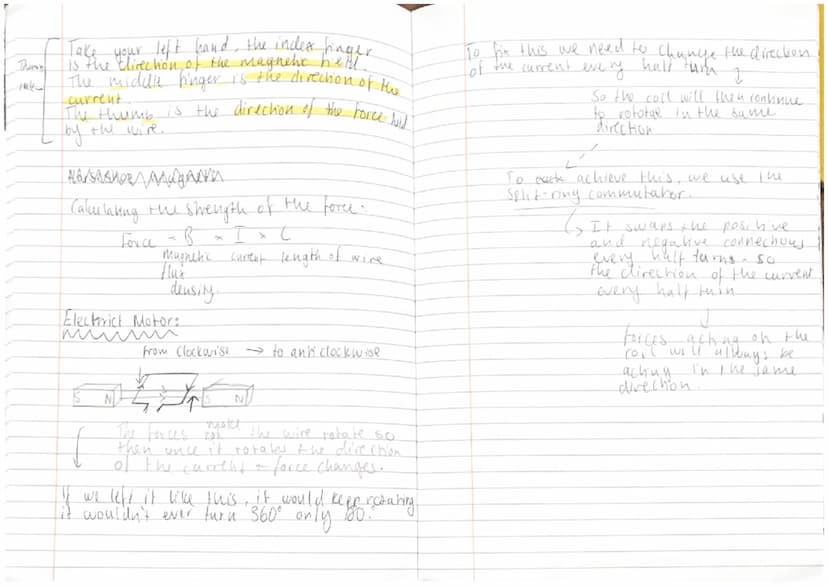 Take your left hand, the index finger
is the direction of the magnetic field.
The middle finger is the direction of the
current.
The thumb is the direction of the force
by the wire.
rule
Calculating the strength of the force:
Force = B x I x L
magnetic current length of wire
flux
density
Electrict Motor:
from clockwise → to anti clockwise
S N S N
The forces make the wire rotate so
then once it rotates the direction
of the current + force changes.
If we left it like this, it would keep rotating
it wouldn't ever turn 360° only 180°
To fix this we need to change the direction
of the current every half turn
So the coil will then continue
to rototate in the same
direction
To achieve this, we use the
split-ring commutator.
It swaps the positive
and negative connections
every half turns - so
the direction of the current
every half turn
forces acting on the
coil will always be
acting in the same
direction.